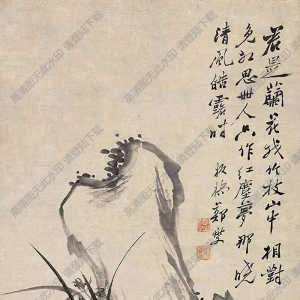 君是蘭花我竹枝山中相對
免紅思世人只作紅塵夢那曉
清風皓露時
板橋鄭燮